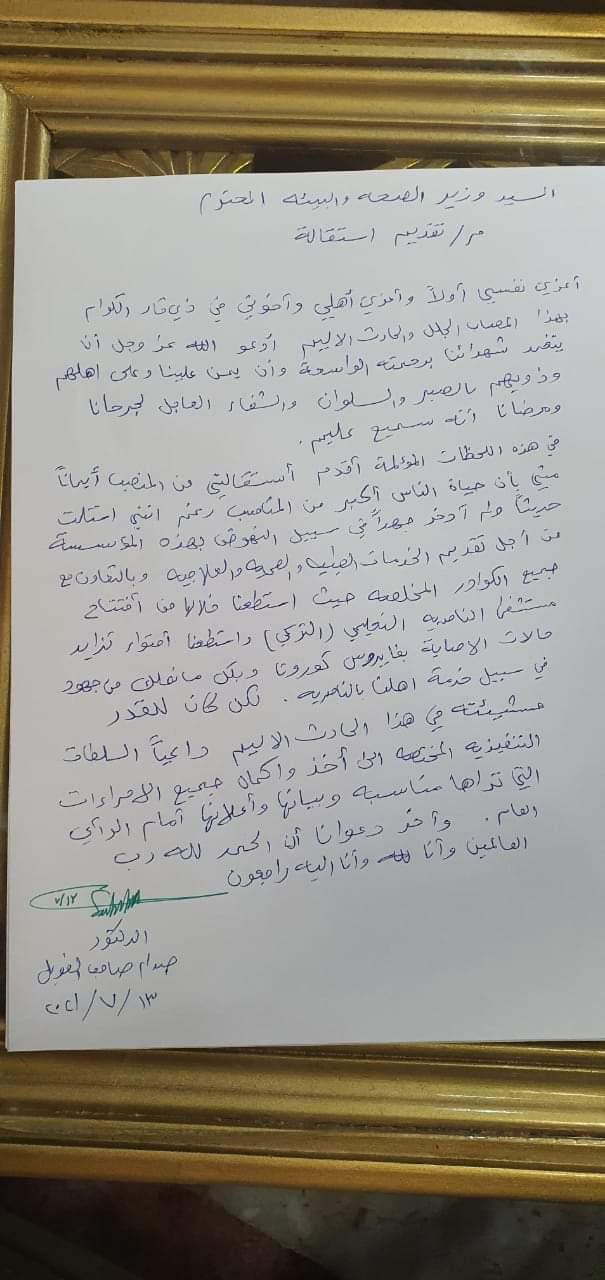 السيد وزير الصحه والبيئه المحترم
م/ تقديم استقالة
أعزي نفسي أولاً وأعزي أهلي وأخوتي في ذي قار الكرام
بهذا المصاب الجلل والحادث الاليم أدعو الله عز وجل أن
يتغمد شهدائنا برحمته الواسعة وأن يمن علينا وعلى اهلهم
وذويهم بالصبر والسلوان والشفاء العاجل لجرحانا
ومرضانا أنه سميع عليم.
في هذه اللحظات المؤلمة أقدم أستقالتي من المنصب أيماناً
مني بأن حياة الناس أكبر من المناصب رغم انني استلمت
حديثاً ولم أدخر جهداً في سبيل النهوض بهذه المؤسسة
من أجل تقديم الخدمات الطبيه والصحيه والعلاجيه وبالتعاون مع
جميع الكوادر المخلصه حيث استطعنا خلالها من أفتتاح
مستشفى الناصريه التعليمي (التركي) واستطعنا أحتواء تزايد
حالات الاصابة بفايروس كورونا وبكل مانملك من جهود
في سبيل خدمة اهلنا بالناصريه. لكن كان للقدر
مشيئته في هذا الحادث الاليم داعياً السلطات
التنفيذيه المختصه الى أخذ واكمال جميع الاجراءات
التي تراها مناسبه وبيانها وأعلانها أمام الرأي
العام. وأخر دعوانا أن الحمد لله رب
العالمين وأنا لله وأنا اليه راجعون
٧/١٢
الدكتور
صدام صاحب الطويل
١٣/٧/٢٠٢١